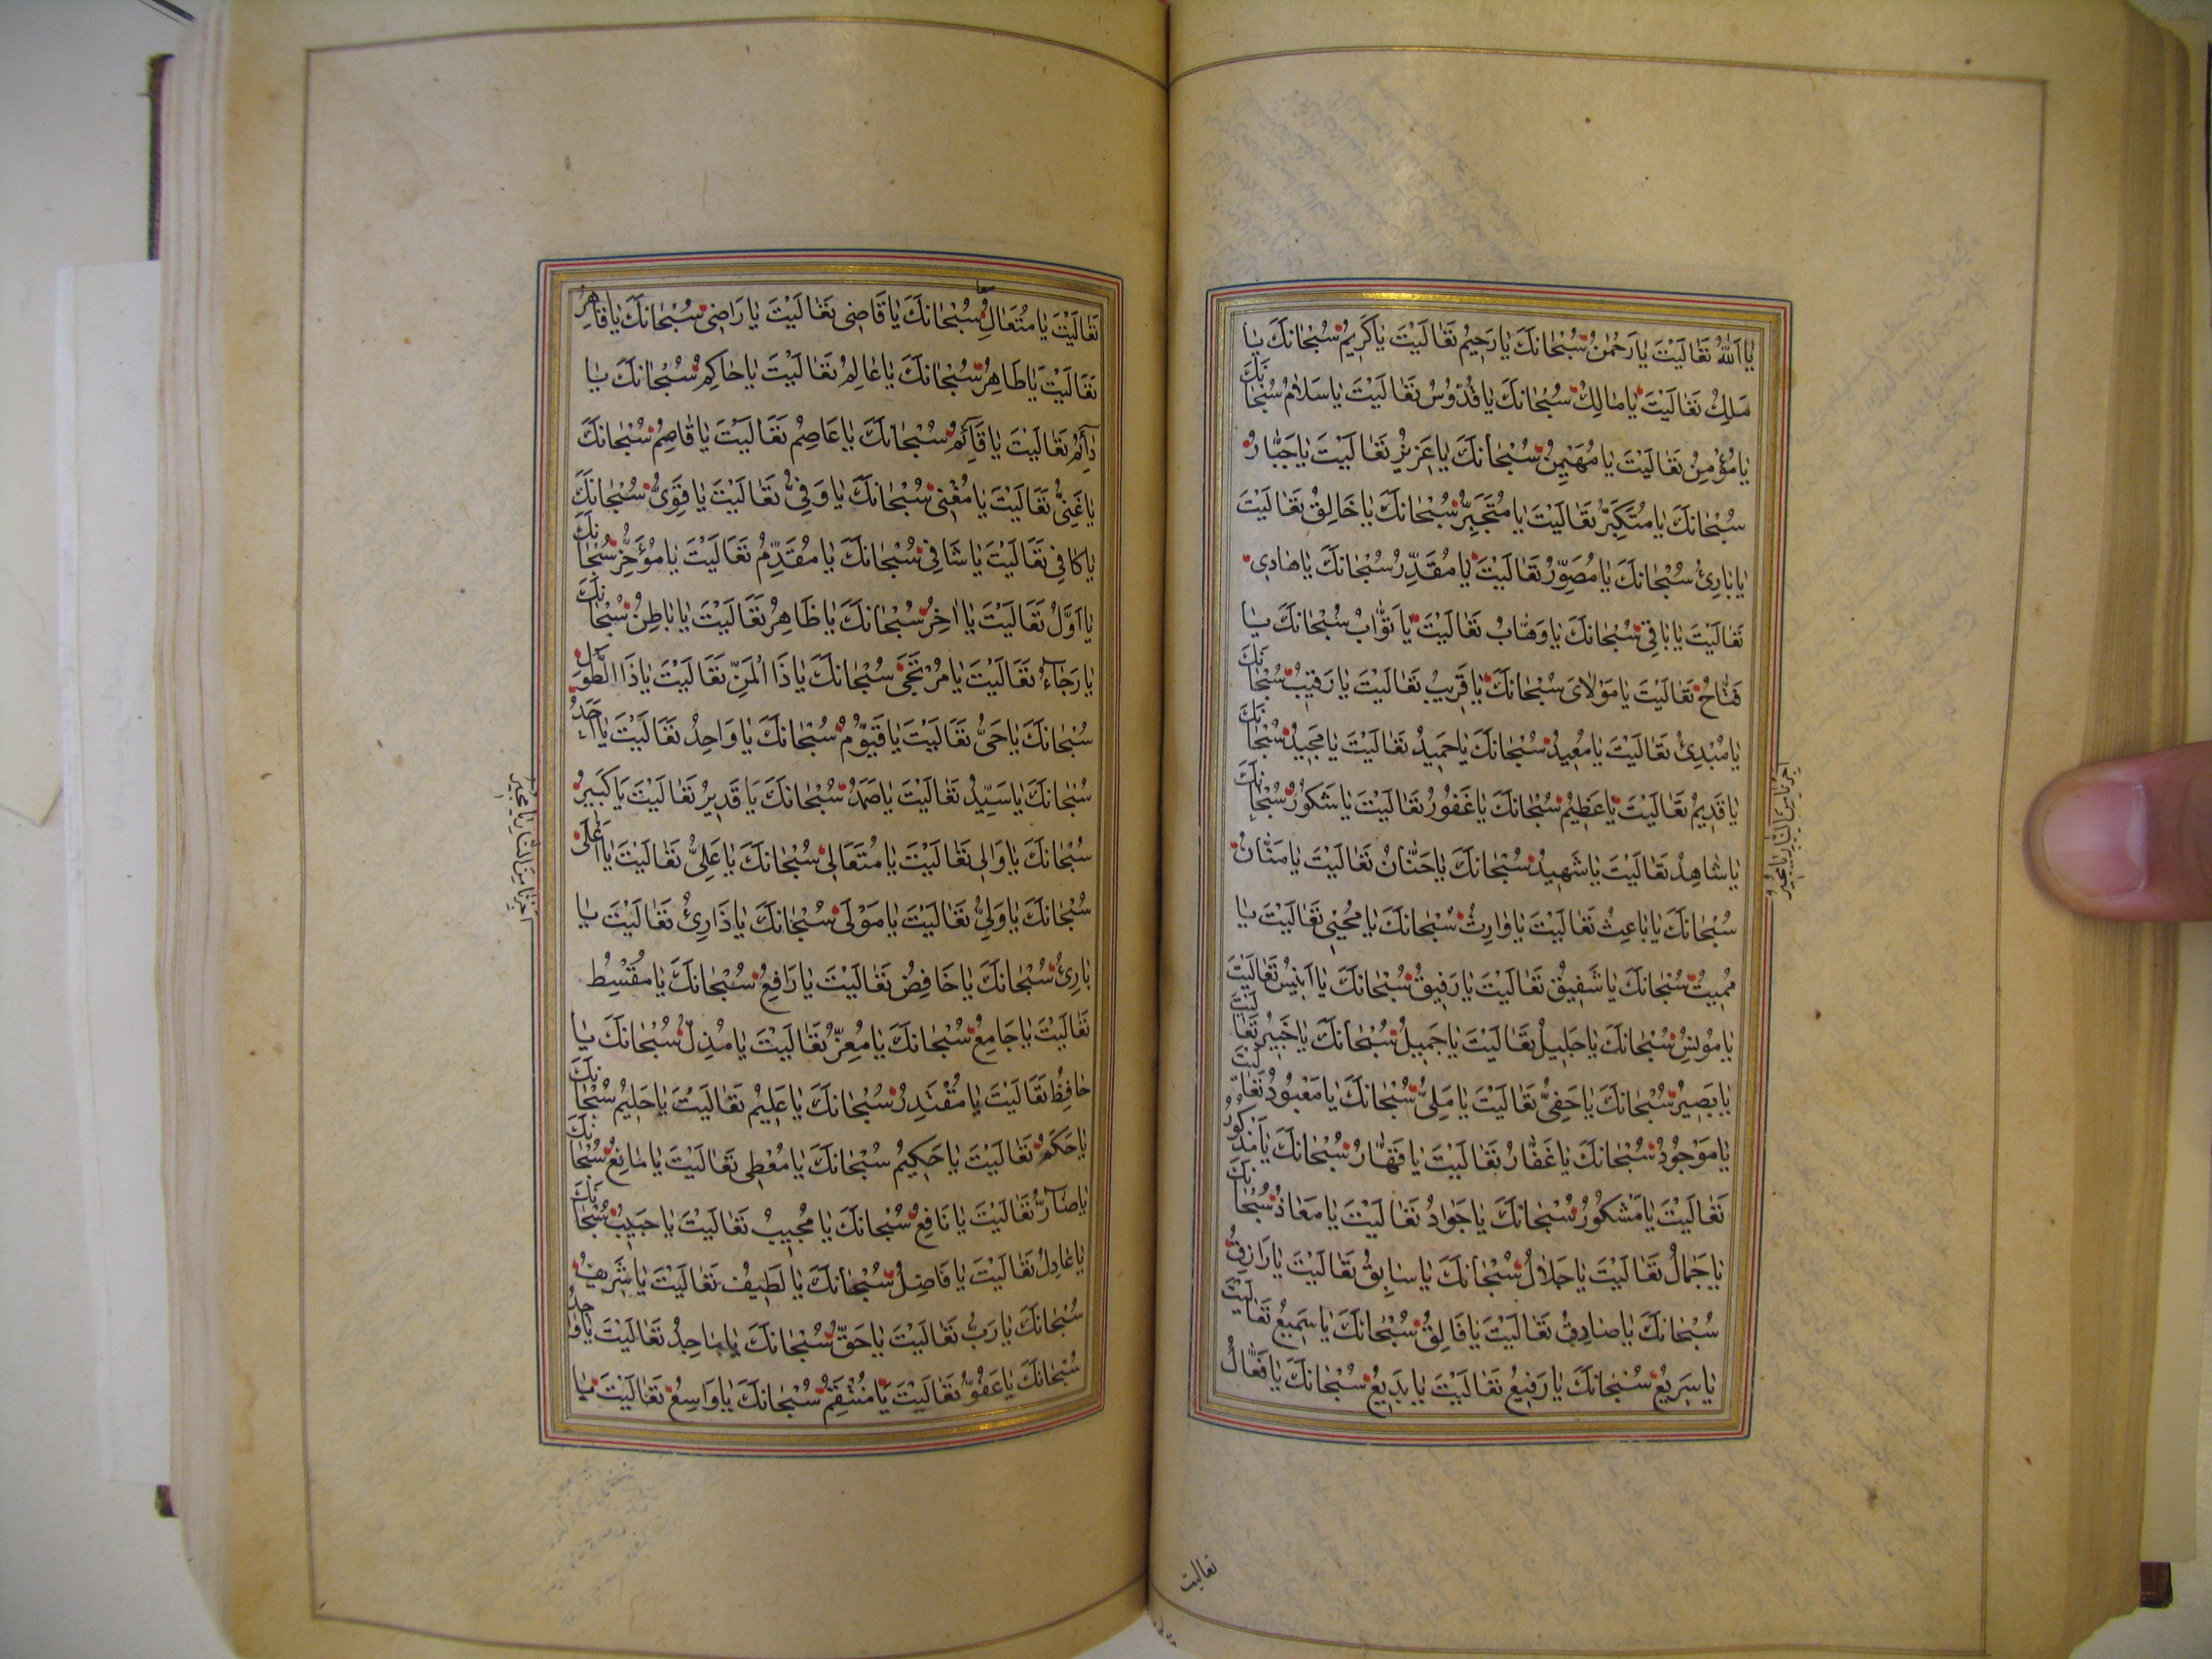 يا اَللّٰهُ تَعٰالَيْتَ يٰا رَحْمٰنُ سُبْحٰانَكَ يٰا رَحِيمُ تَعٰالَيْتَ يٰا كَرِيمُ سُبْحٰانَكَ يٰا
مَلِكُ تَعٰالَيْتَ يٰا مٰالِكُ سُبْحٰانَكَ يٰا قُدُّوسُ تَعٰالَيْتَ يٰا سَلٰامُ سُبْحٰانَكَ
يٰا مُؤْمِنُ تَعٰالَيْتَ يٰا مُهَيْمِنُ سُبْحٰانَكَ يٰا عَزِيزُ تَعٰالَيْتَ يٰا جَبّٰارُ
سُبْحٰانَكَ يٰا مُتَكَبِّرُ تَعٰالَيْتَ يٰا مُتَجَبِّرُ سُبْحٰانَكَ يٰا خٰالِقُ تَعٰالَيْتَ
يٰا بٰارِئُ سُبْحٰانَكَ يٰا مُصَوِّرُ تَعٰالَيْتَ يٰا مُقَدِّرُ سُبْحٰانَكَ يٰا هٰادِي
تَعٰالَيْتَ يٰا بٰاقِي سُبْحٰانَكَ يٰا وَهّٰابُ تَعٰالَيْتَ يٰا تَوّٰابُ سُبْحٰانَكَ يٰا
فَتّٰاحُ تَعٰالَيْتَ يٰا مَوْلٰايَ سُبْحٰانَكَ يٰا قَرِيبُ تَعٰالَيْتَ يٰا رَقِيبُ سُبْحٰانَكَ
يٰا مُبْدِئُ تَعٰالَيْتَ يٰا مُعِيدُ سُبْحٰانَكَ يٰا حَمِيدُ تَعٰالَيْتَ يٰا مَجِيدُ سُبْحٰانَكَ
يٰا قَدِيمُ تَعٰالَيْتَ يٰا عَظِيمُ سُبْحٰانَكَ يٰا غَفُورُ تَعٰالَيْتَ يٰا شَكُورُ سُبْحٰانَكَ
يٰا شٰاهِدُ تَعٰالَيْتَ يٰا شَهِيدُ سُبْحٰانَكَ يٰا حَنّٰانُ تَعٰالَيْتَ يٰا مَنّٰانُ
سُبْحٰانَكَ يٰا بٰاعِثُ تَعٰالَيْتَ يٰا وٰارِثُ سُبْحٰانَكَ يٰا مُحْيِي تَعٰالَيْتَ يٰا
مُمِيتُ سُبْحٰانَكَ يٰا شَفِيقُ تَعٰالَيْتَ يٰا رَفِيقُ سُبْحٰانَكَ يٰا اَنِيسُ تَعٰالَيْتَ
يٰا مُونِسُ سُبْحٰانَكَ يٰا جَلِيلُ تَعٰالَيْتَ يٰا جَمِيلُ سُبْحٰانَكَ يٰا خَبِيرُ تَعٰالَيْتَ
يٰا بَصِيرُ سُبْحٰانَكَ يٰا حَفِيُّ تَعٰالَيْتَ يٰا مَلِيُّ سُبْحٰانَكَ يٰا مَعْبُودُ تَعٰالَيْتَ
يٰا مَوْجُودُ سُبْحٰانَكَ يٰا غَفّٰارُ تَعٰالَيْتَ يٰا قَهّٰارُ سُبْحٰانَكَ يٰا مَذْكُورُ
تَعٰالَيْتَ يٰا مَشْكُورُ سُبْحٰانَكَ يٰا جَوٰادُ تَعٰالَيْتَ يٰا مَعٰاذُ سُبْحٰانَكَ
يٰا جَمٰالُ تَعٰالَيْتَ يٰا جَلٰالُ سُبْحٰانَكَ يٰا سٰابِقُ تَعٰالَيْتَ يٰا رٰازِقُ
سُبْحٰانَكَ يٰا صٰادِقُ تَعٰالَيْتَ يٰا فٰالِقُ سُبْحٰانَكَ يٰا سَمِيعُ تَعٰالَيْتَ
يٰا سَرِيعُ سُبْحٰانَكَ يٰا رَفِيعُ تَعٰالَيْتَ يٰا بَدِيعُ سُبْحٰانَكَ يٰا فَعّٰالُ
اَجِرْنٰا مِنَ النّٰارِ يٰا مُجِيرُ
تعاليت
تَعٰالَيْتَ يٰا مُتَعٰالِ سُبْحٰانَكَ يٰا قٰاضِي تَعٰالَيْتَ يٰا رٰاضِي سُبْحٰانَكَ يٰا قٰاهِرُ
تَعٰالَيْتَ يٰا طٰاهِرُ سُبْحٰانَكَ يٰا عٰالِمُ تَعٰالَيْتَ يٰا حٰاكِمُ سُبْحٰانَكَ يٰا
دٰائِمُ تَعٰالَيْتَ يٰا قٰائِمُ سُبْحٰانَكَ يٰا عٰاصِمُ تَعٰالَيْتَ يٰا قٰاصِمُ سُبْحٰانَكَ
يٰا غَنِيُّ تَعٰالَيْتَ يٰا مُغْنِي سُبْحٰانَكَ يٰا وَفِيُّ تَعٰالَيْتَ يٰا قَوِيُّ سُبْحٰانَكَ
يٰا كٰافِي تَعٰالَيْتَ يٰا شٰافِي سُبْحٰانَكَ يٰا مُقَدِّمُ تَعٰالَيْتَ يٰا مُؤَخِّرُ سُبْحٰانَكَ
يٰا اَوَّلُ تَعٰالَيْتَ يٰا اٰخِرُ سُبْحٰانَكَ يٰا ظٰاهِرُ تَعٰالَيْتَ يٰا بٰاطِنُ سُبْحٰانَكَ
يٰا رَجٰاءُ تَعٰالَيْتَ يٰا مُرْتَجَى سُبْحٰانَكَ يٰا ذَا الْمَنِّ تَعٰالَيْتَ يٰا ذَا الطَّوْلِ
سُبْحٰانَكَ يٰا حَيُّ تَعٰالَيْتَ يٰا قَيُّومُ سُبْحٰانَكَ يٰا وٰاحِدُ تَعٰالَيْتَ يٰا اَحَدُ
سُبْحٰانَكَ يٰا سَيِّدُ تَعٰالَيْتَ يٰا صَمَدُ سُبْحٰانَكَ يٰا قَدِيرُ تَعٰالَيْتَ يٰا كَبِيرُ
سُبْحٰانَكَ يٰا وٰالِي تَعٰالَيْتَ يٰا مُتَعٰالِي سُبْحٰانَكَ يٰا عَلِيُّ تَعٰالَيْتَ يٰا اَعْلَى
سُبْحٰانَكَ يٰا وَلِيُّ تَعٰالَيْتَ يٰا مَوْلَى سُبْحٰانَكَ يٰا ذٰارِئُ تَعٰالَيْتَ يٰا
بٰارِئُ سُبْحٰانَكَ يٰا خٰافِضُ تَعٰالَيْتَ يٰا رٰافِعُ سُبْحٰانَكَ يٰا مُقْسِطُ
تَعٰالَيْتَ يٰا جٰامِعُ سُبْحٰانَكَ يٰا مُعِزُّ تَعٰالَيْتَ يٰا مُذِلُّ سُبْحٰانَكَ يٰا
حٰافِظُ تَعٰالَيْتَ يٰا مُقْتَدِرُ سُبْحٰانَكَ يٰا عَلِيمُ تَعٰالَيْتَ يٰا حَلِيمُ سُبْحٰانَكَ
يٰا حَكَمُ تَعٰالَيْتَ يٰا حَكِيمُ سُبْحٰانَكَ يٰا مُعْطِي تَعٰالَيْتَ يٰا مٰانِعُ سُبْحٰانَكَ
يٰا ضٰارُّ تَعٰالَيْتَ يٰا نٰافِعُ سُبْحٰانَكَ يٰا مُجِيبُ تَعٰالَيْتَ يٰا حَبِيبُ سُبْحٰانَكَ
يٰا عٰادِلُ تَعٰالَيْتَ يٰا فٰاصِلُ سُبْحٰانَكَ يٰا لَطِيفُ تَعٰالَيْتَ يٰا شَرِيفُ
سُبْحٰانَكَ يٰا رَبُّ تَعٰالَيْتَ يٰا حَقُّ سُبْحٰانَكَ يٰا مٰاجِدُ تَعٰالَيْتَ يٰا وٰاحِدُ
سُبْحٰانَكَ يٰا عَفُوُّ تَعٰالَيْتَ يٰا مُنْتَقِمُ سُبْحٰانَكَ يٰا وٰاسِعُ تَعٰالَيْتَ يٰا
اَجِرْنٰا مِنَ النّٰارِ يٰا مُجِيرُ